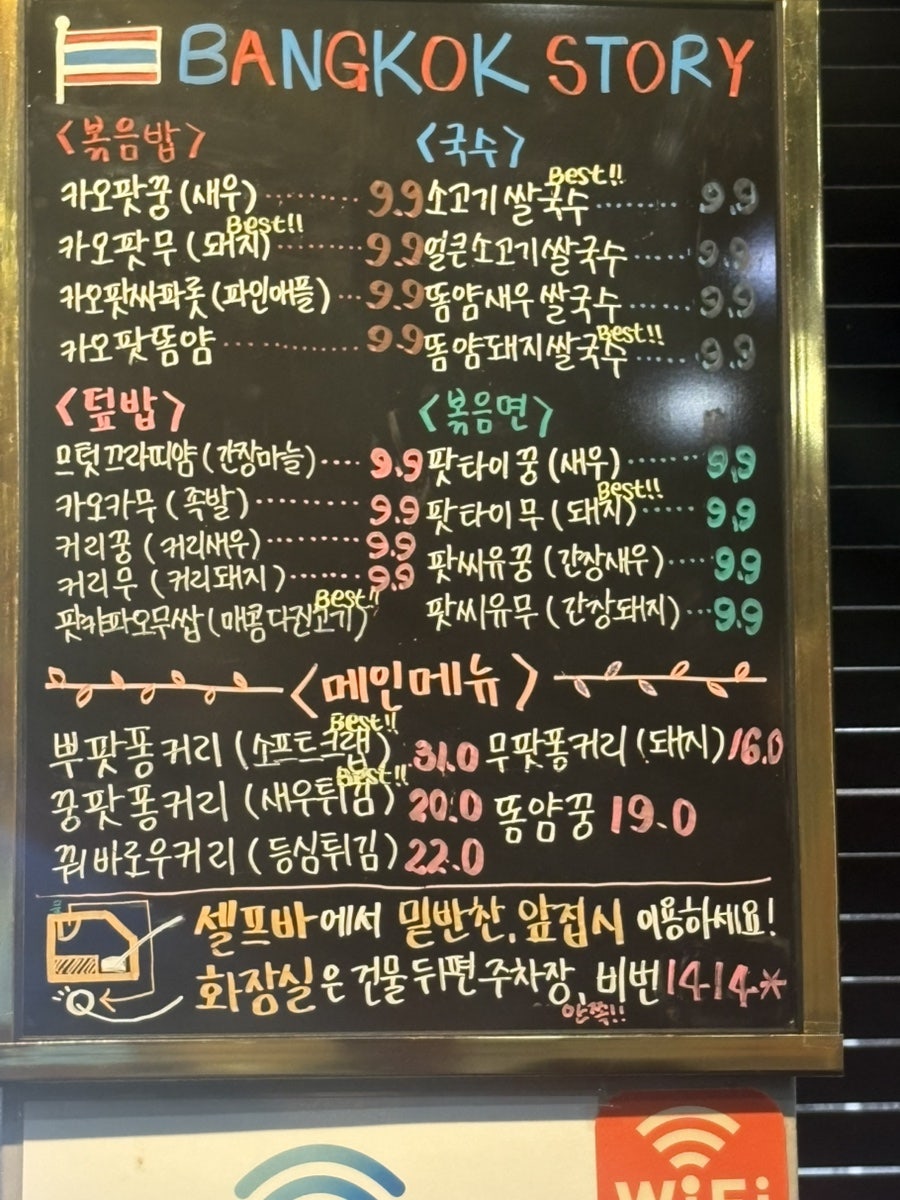 BANGKOK STORY
<볶음밥>
카오팟꿍 (새우) ········ 9.9
Best!!
카오팟무 (돼지) ······· 9.9
카오팟싸파롯 (파인애플) ··· 9.9
카오팟똠얌 ··········· 9.9
<국수>
Best!!
소고기 쌀국수 ······ 9.9
얼큰소고기쌀국수 ····· 9.9
똠얌새우 쌀국수 ····· 9.9
Best!!
똠얌돼지쌀국수 ···· 9.9
<덮밥>
므텃끄라띠얌 (간장마늘) ···· 9.9
카오카무 (족발) ········· 9.9
커리꿍 (커리새우) ······· 9.9
커리무 (커리돼지) ······ 9.9
Best!!
팟캬파오무쌉 (매콤다진고기)
<볶음면>
팟타이꿍 (새우) ······ 9.9
Best!!
팟타이무 (돼지) ····· 9.9
팟씨유꿍 (간장새우) ···· 9.9
팟씨유무 (간장돼지) ··· 9.9
<메인메뉴>
Best!!
뿌팟퐁커리 (소프트크랩) 31.0
Best!!
꿍팟퐁커리 (새우튀김) 20.0
꿔바로우커리 (등심튀김) 22.0
무팟퐁커리 (돼지) 16.0
똠얌꿍 19.0
셀프바에서 밑반찬, 앞접시 이용하세요!
화장실은 건물 뒤편 주차장, 비번 1414*
안쪽!!
WiFi